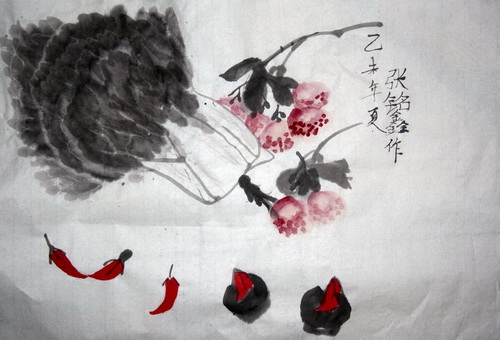 乙未年夏
张铭鑫作